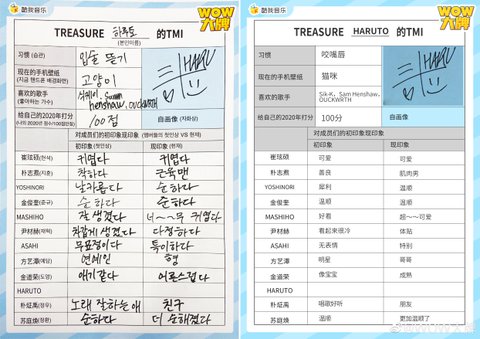 酷我音乐
WOW
大牌
TREASURE 하루토 的TMI
(본인이름)
习惯 (습관)
입술 뜯기
现在的手机壁纸
(지금 핸드폰 배경화면)
고양이
喜欢的歌手
(좋아하는 가수)
식케이, Sam henshaw, OUCKWRTH
给自己的2020年打分
(나의 2020년 점수/100점만점)
100점
HARU
自画像 (자화상)
对成员们的初印象现印象 (멤버들의 첫인상 VS 현재)
初印象(첫인상) 现印象(현재)
崔玹硕(현석) 귀엽다 귀엽다
朴志焄(지훈) 착하다 근육맨
YOSHINORI 날카롭다 순하다
金俊奎(준규) 순하다 순하다
MASHIHO 잘 생겼다 너~~무 귀엽다
尹材赫(재혁) 차갑게 생겼다 다정하다
ASAHI 무표정이다 특이하다
方艺潭(예담) 연예인 형
金道荣(도영) 애기같다 어른스럽다
HARUTO
朴炡禹(정우) 노래 잘하는 애 친구
苏庭焕(정환) 순하다 더 순해졌다
酷我音乐
WOW
大牌
TREASURE HARUTO 的TMI
习惯 咬嘴唇
现在的手机壁纸 猫咪
喜欢的歌手 Sik-K、Sam Henshaw、OUCKWRTH
给自己的2020年打分 100分
HARU
自画像
对成员们的初印象现印象
初印象 现印象
崔玹硕 可爱 可爱
朴志焄 善良 肌肉男
YOSHINORI 犀利 温顺
金俊奎 温顺 温顺
MASHIHO 好看 超~~~可爱
尹材赫 看起来很冷 体贴
ASAHI 无表情 特别
方艺潭 明星 哥哥
金道荣 像宝宝 成熟
HARUTO
朴炡禹 唱歌好听 朋友
苏庭焕 温顺 更加温顺了